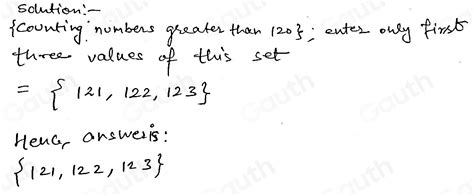 Solution:-
{Counting numbers greater than 120}; enter only first
three values of this set
= { 121, 122, 123}
Hence, answer is:
{121, 122, 123}
Gauth